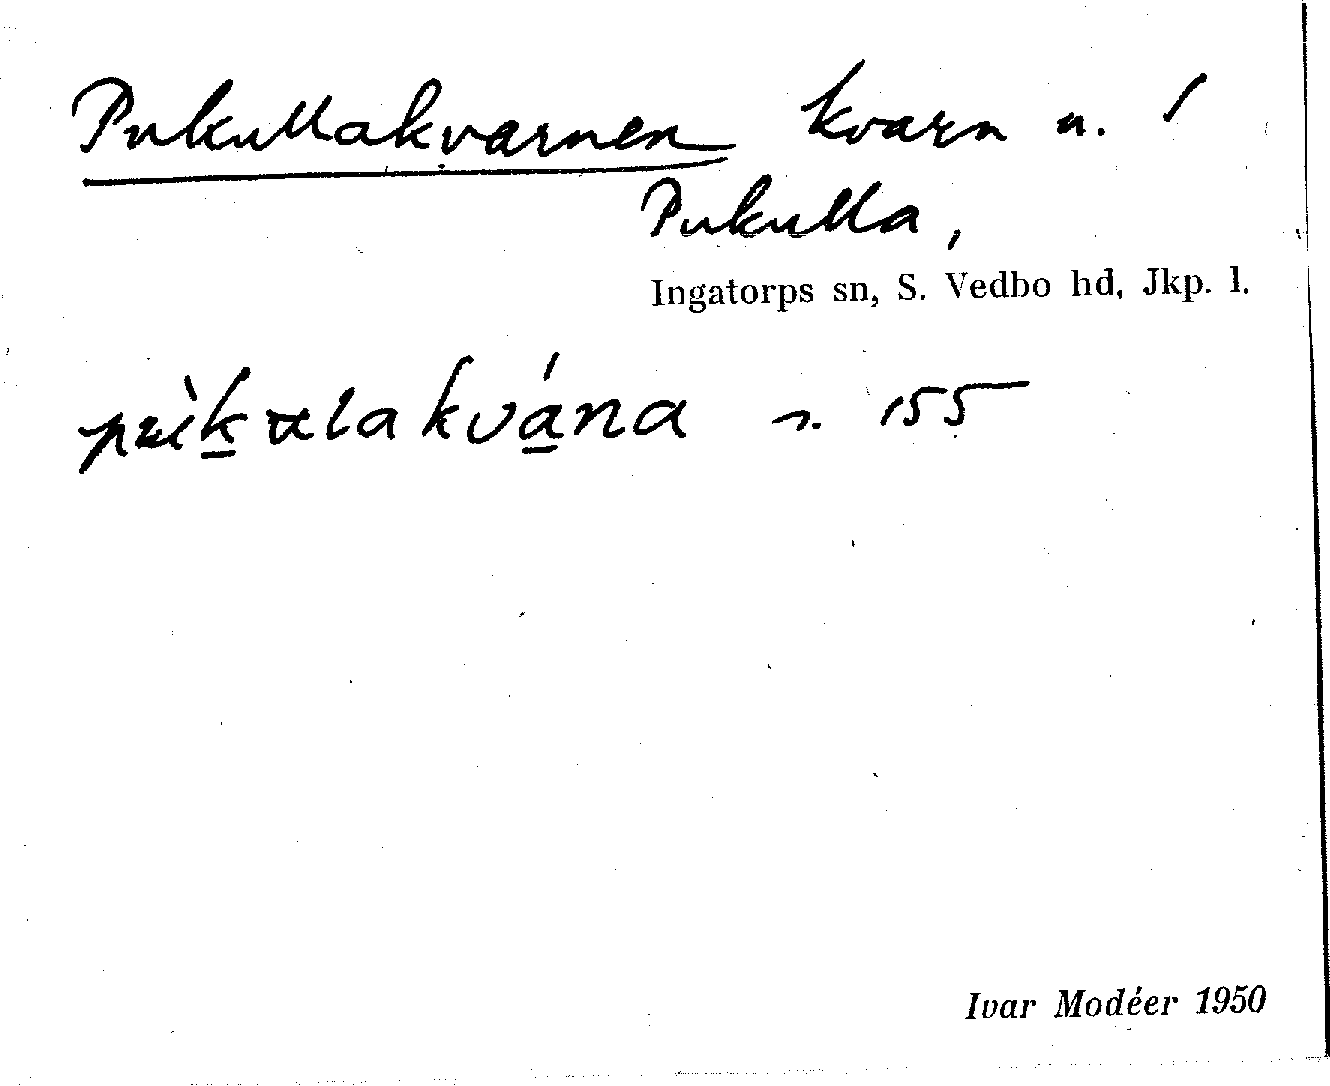 Pukullakvarnen kvarn u. /
Pukulla,
Ingatorps sn, S. Vedbo hd, Jkp. l.
s. 155
Ivar Modéer 1950